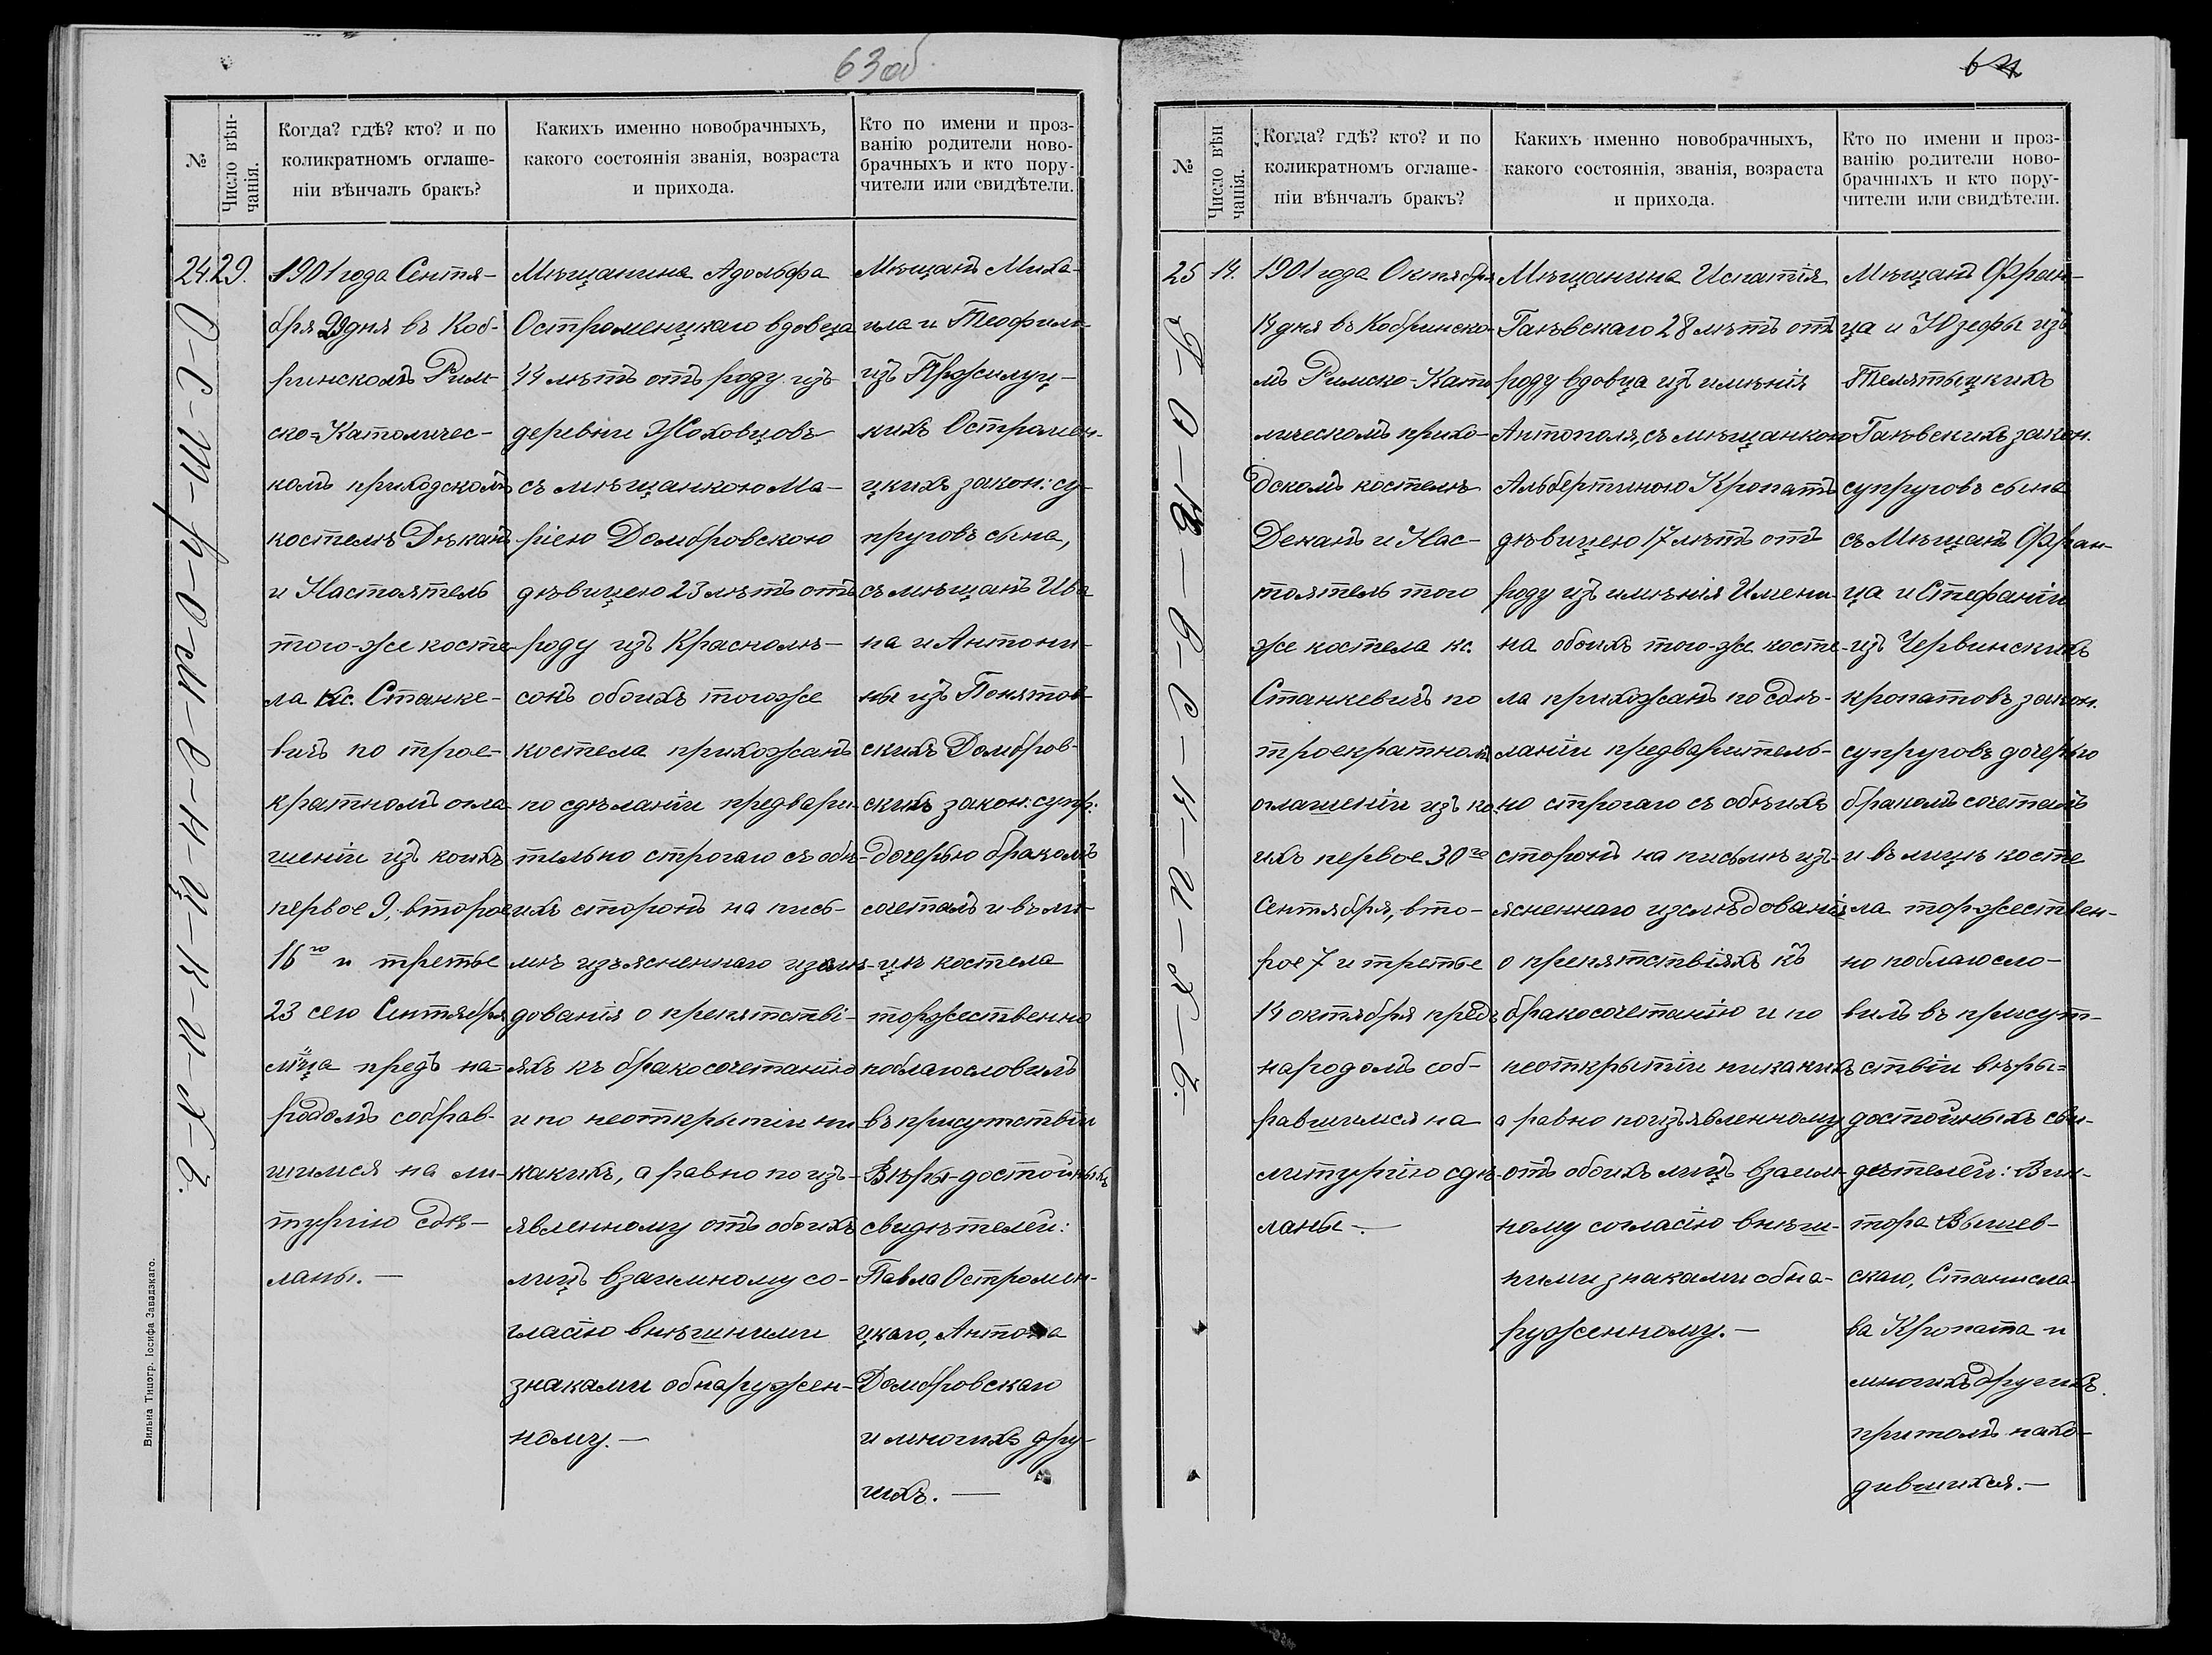 63 об
№
Число вѣн-
чанія.
Когда? гдѣ? кто? и по
коликратномъ оглаше-
ніи вѣнчалъ бракъ?
Какихъ именно новобрачныхъ,
какого состоянія званія, возраста
и прихода.
Кто по имени и проз-
ванію родители ново-
брачныхъ и кто пору-
чители или свидѣтели.
24.
29.
1901 года Сентя-
бря 29 дня въ Коб-
ринскомъ Рим-
ско-Католичес-
комъ приходскомъ
костелѣ Дѣканъ
и Настоятель
того-же косте-
ла Кс. Станке-
вичъ по трое-
кратномъ огла-
шеніи изъ коихъ
первое 9, второе
16го и третье
23 сего Сентября
м-ца предъ на-
родомъ собрав-
шимся на ли-
тургію сдѣ-
ланы. —
Мѣщанина Адольфа
Остроменцкаго вдовца
44 лѣтъ отъ роду изъ
деревни Жоховцовъ
съ мѣщанкою Ма-
ріею Домбровскою
дѣвицею 23 лѣтъ отъ
роду изъ Красколѣ-
сокъ обоихъ тогоже
костела прихожанъ
по сдѣланіи предвари-
тельно строгаго съ обѣ-
ихъ сторонъ на пись-
мѣ изъясненнаго изслѣ-
дованія о препятстві-
яхъ къ бракосочетанію
и по неоткрытіи ни
какихъ, а равно по изъ-
явленному отъ обоихъ
лицъ взаимному со-
гласію внѣшними
знаками обнаружен-
ному. —
Мѣщанъ Миха-
ила и Теофили
изъ Пржилуц-
кихъ Остромен-
цкихъ закон: су-
пруговъ сына,
съ мѣщанъ Ива
на и Антони-
ны изъ Понятов-
скихъ Домбров-
скихъ закон: супр:
дочерью бракомъ
сочеталъ и въ ли-
цѣ костела
торжественно
поблагословилъ
въ присутствіи
Вѣры-достойныхъ
свидѣтелей:
Павла Остромен-
цкаго, Антона
Домбровскаго
и многихъ дру-
гихъ. —
О-с-т-р-о-м-е-н-ц-к-і-й-
Вильна Типогр. Іосифа Завадзкаго.
64
№
Число вѣн
чанія.
Когда? гдѣ? кто? и по
коликратномъ оглаше-
ніи вѣнчалъ бракъ?
Какихъ именно новобрачныхъ,
какого состоянія, званія, возраста
и прихода.
Кто по имени и проз-
ванію родители ново-
брачныхъ и кто пору-
чители или свидѣтели.
25
14.
1901 года Октября
14 дня въ Кобринско-
мъ Римско-Като
лическомъ прихо-
дскомъ костелѣ
Деканъ и Нас-
тоятель того
же костела кс.
Станкевичъ по
троекратномъ
оглашеніи изъ ко-
ихъ первое 30го
Сентября, вто-
рое 7 и третье
14 октября предъ
народомъ соб-
равшимся на
литургію сдѣ-
ланы —.
Мѣщанина Игнатія
Гаювскаго 28 лѣтъ отъ
роду вдовца изъ имѣнія
Антополя, съ мѣщанкою
Альбертиною Кропатъ
дѣвицею 17 лѣтъ отъ
роду изъ имѣнія Имени-
на обоихъ того-же косте-
ла прихожанъ по сдѣ-
ланіи предваритель-
но строгаго съ обѣихъ
сторонъ на письмѣ изъ-
ясненнаго изслѣдованія
о препятствіяхъ къ
бракосочетанію и по
неоткрытіи никакихъ
а равно по изъявленному
отъ обоихъ лицъ взаим-
ному согласію внѣш-
ними знаками обна-
руженному. —
Мѣщанъ Фран-
ца и Юзефы изъ
Телятыцкихъ
Гаювскихъ закон.
супруговъ сына
съ Мѣщанъ Фран-
ца и Стефаніи
изъ Червинскихъ
Кропатовъ закон.
супруговъ дочерью
бракомъ сочеталъ
и въ лицѣ косте
ла торжествен-
но поблагосло-
вилъ въ присут-
ствіи вѣры=
достойныхъ сви-
дѣтелей: Вик-
тора Вышев-
скаго, Станисла-
ва Кропата и
многихъ другихъ
притомъ нахо-
дившихся. —